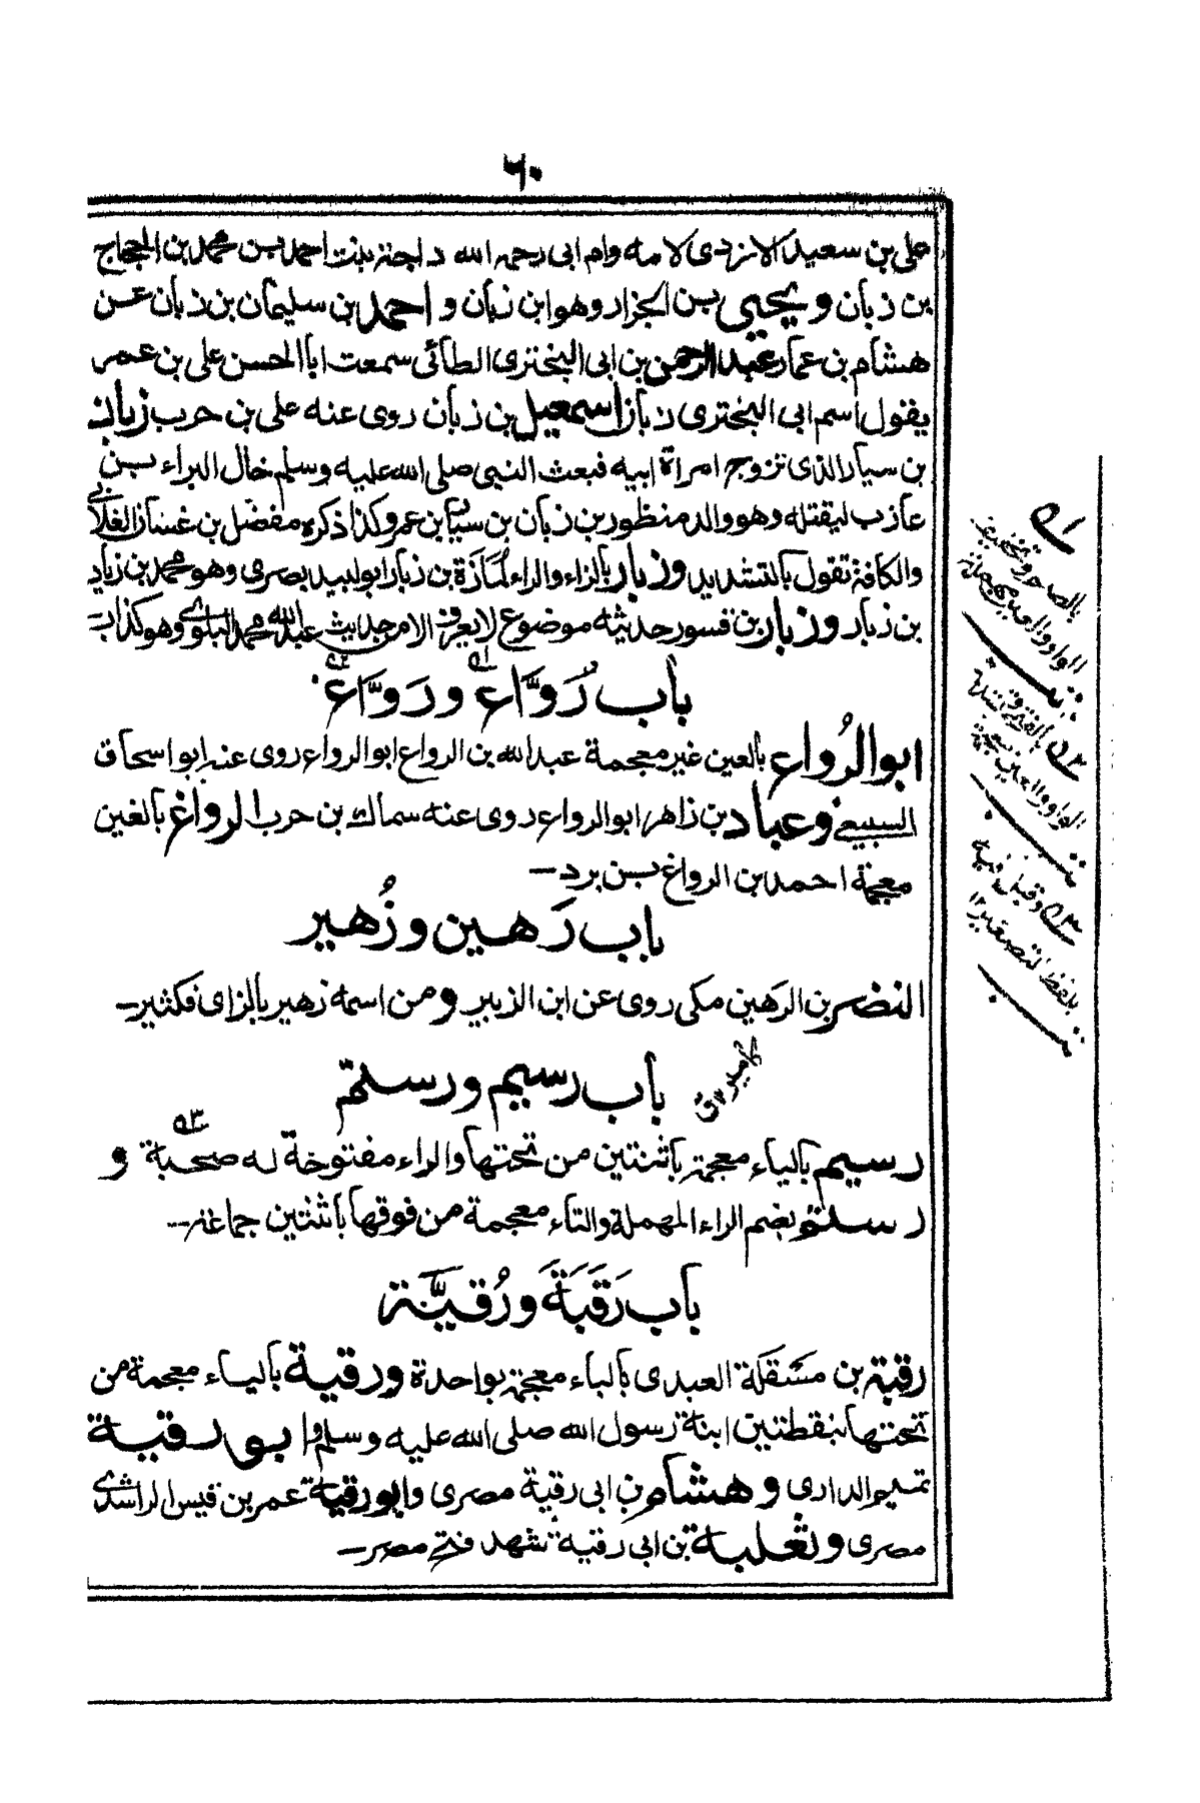 ٦٠
علي بن سعيد الازدى لامه وام ابى رحمه الله د اجتة بنت احمد بن محمد بن الحجاج
بن زبان ويحيى بن الجزار وهو ابن زبان و احمد بن سليمان بن زبان عن
هشام بن عمار عبد الرحمن بن ابى البخترى الطائى سمعت ابا الحسن على بن عمر
يقول اسم ابى البخترى زبان اسمعيل بن زبان روى عنه على بن حرب زبان
بن سيار الذى تزوج امراة ابيه فبعث النبى صلى الله عليه وسلم خال البراء بن
عازب ليقتله وهو والد منظور بن زبان بن سيار بن عمر وكذا ذكره مفضل بن غسان الغلابى
والكافة تقول بالتشديد وزبار بالزاء والراء لمازة بن زبار ابو لبيد بصرى وهو محمد بن زياد
بن زبار وزبار بن قسور حديثه موضوع لا يعرف الا من حديث عبد الله محمد البلوى وهو كذاب
باب رُوَّاع ورَوَّاغ
ابو الرُواع بالعين غير معجمة عبد الله بن الرواع ابو الرواع روى عنه ابو اسحاق
السبيعى وعباد بن زاهر ابو الرواع روى عنه سماك بن حرب الرواغ بالغين
معجمة احمد بن الرواغ بن برد —
باب رَهين وزُهير
النضر بن الرَهين مكى روى عن ابن الزبير ومن اسمه زهير بالزاى فكثير —
باب رسيم ورستم
رسيم بالياء معجمة باثنتين من تحتها والراء مفتوحة له صحبة و
رستم بضم الراء المهملة والتاء معجمة من فوقها باثنتين جماعة —
باب رَقَبَة ورُقيَّة
رقبة بن مَسْقَلَة العبدى بالباء معجمة بواحدة ورقية بالياء معجمة من
تحتها بنقطتين ابنة رسول الله صلى الله عليه وسلم وابو رقية
تميم الدارى وهشام بن ابى رقية مصرى وابو رقية عمر بن قيس الراشدى
مصرى وثعلبة بن ابى رقية شهد فتح مصر —